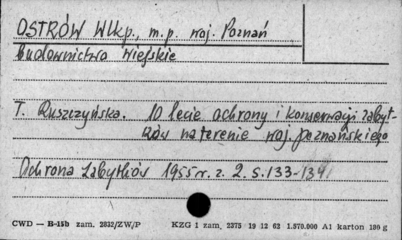 OSTRÓW Wlkp., m.p. woj. Poznań
Budownictwo Wiejskie
T. Ruszczyńska. 10 lecie ochrony i konserwacji zabyt-
ków na terenie woj. poznańskiego
Ochrona Zabytków 1955 r. z. 2. s. 133-134
CWD — B-15b zam. 2832/ZW/P KZG 1 zam. 2375 19 12 62 1.570.000 A1 karton 180 g